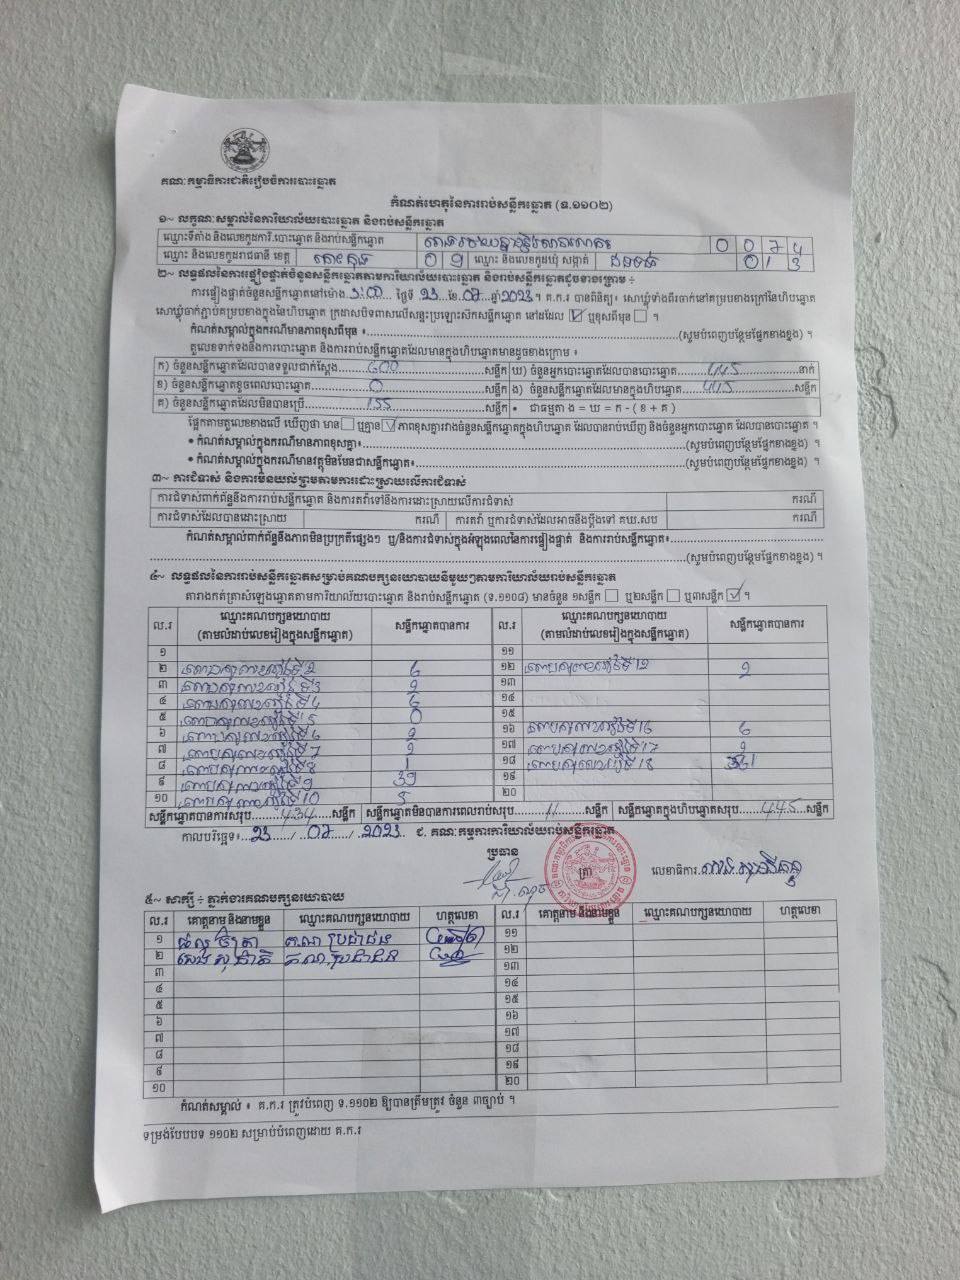 គណៈកម្មាធិការជាតិរៀបចំការបោះឆ្នោត
កំណត់ហេតុនៃការរាប់សន្លឹកឆ្នោត (ទ.១១០២)
១~ លក្ខណៈសម្គាល់នៃការិយាល័យបោះឆ្នោត និងរាប់សន្លឹកឆ្នោត
ឈ្មោះទីតាំង និងលេខកូដការិ.បោះឆ្នោត និងរាប់សន្លឹកឆ្នោត 0 0 7 4
ឈ្មោះ និងលេខកូដរាជធានី ខេត្ត កោះកុង 0 9 ឈ្មោះ និងលេខកូដឃុំ សង្កាត់ ដងទង់ 0 1 3
២~ លទ្ធផលនៃការផ្ទៀងផ្ទាត់ចំនួនសន្លឹកឆ្នោតតាមការិយាល័យបោះឆ្នោត និងរាប់សន្លឹកឆ្នោតដូចខាងក្រោម ÷
ការផ្ទៀងផ្ទាត់ចំនួនសន្លឹកឆ្នោតនៅម៉ោង ៖ ថ្ងៃទី 23 ខែ 07 ឆ្នាំ 2023 ។ គ.ក.រ បានពិនិត្យ ៖ សោឃ្លុំទាំងពីរចាក់នៅគម្របខាងក្រៅនៃហិបឆ្នោត
សោឃ្លុំចាក់ភ្ជាប់គម្របខាងក្នុងនៃហិបឆ្នោត ក្រដាសបិទពាសលើសន្ទះប្រឡោះស៊កសន្លឹកឆ្នោត នៅដដែល ☑ ឬខុសពីមុន ☐ ។
កំណត់សម្គាល់ក្នុងករណីមានភាពខុសពីមុន ៖ (សូមបំពេញបន្ថែមផ្នែកខាងខ្នង) ។
តួលេខទាក់ទងនឹងការបោះឆ្នោត និងការរាប់សន្លឹកឆ្នោតដែលមានក្នុងហិបឆ្នោតមានដូចខាងក្រោម ៖
ក) ចំនួនសន្លឹកឆ្នោតដែលបានទទួលជាក់ស្តែង 600 សន្លឹក ឃ) ចំនួនអ្នកបោះឆ្នោតដែលបានបោះឆ្នោត 445 នាក់
ខ) ចំនួនសន្លឹកឆ្នោតខូចពេលបោះឆ្នោត 0 សន្លឹក ង) ចំនួនសន្លឹកឆ្នោតដែលមានក្នុងហិបឆ្នោត 445 សន្លឹក
គ) ចំនួនសន្លឹកឆ្នោតដែលមិនបានប្រើ 155 សន្លឹក • ជាធម្មតា ង = ឃ = ក - ( ខ + គ )
ផ្អែកតាមតួលេខខាងលើ ឃើញថា មាន ☐ ឬគ្មាន ☑ ភាពខុសគ្នារវាងចំនួនសន្លឹកឆ្នោតក្នុងហិបឆ្នោត ដែលបានរាប់ឃើញ និងចំនួនអ្នកបោះឆ្នោត ដែលបានបោះឆ្នោត ។
• កំណត់សម្គាល់ក្នុងករណីមានភាពខុសគ្នា៖ (សូមបំពេញបន្ថែមផ្នែកខាងខ្នង) ។
• កំណត់សម្គាល់ក្នុងករណីមានវត្ថុមិនមែនជាសន្លឹកឆ្នោត៖ (សូមបំពេញបន្ថែមផ្នែកខាងខ្នង) ។
៣~ ការជំទាស់ និងការមិនយល់ព្រមតាមការដោះស្រាយលើការជំទាស់
ការជំទាស់ពាក់ព័ន្ធនឹងការរាប់សន្លឹកឆ្នោត និងការតវ៉ាទៅនឹងការដោះស្រាយលើការជំទាស់ ករណី
ការជំទាស់ដែលបានដោះស្រាយ ករណី ការតវ៉ា ឬការជំទាស់ដែលអាចនឹងប្តឹងទៅ គឃ.សប ករណី
កំណត់សម្គាល់ពាក់ព័ន្ធនឹងភាពមិនប្រក្រតីផ្សេងៗ ឬ/និងការជំទាស់ក្នុងអំឡុងពេលនៃការផ្ទៀងផ្ទាត់ និងការរាប់សន្លឹកឆ្នោត៖
(សូមបំពេញបន្ថែមផ្នែកខាងខ្នង) ។
៤~ លទ្ធផលនៃការរាប់សន្លឹកឆ្នោតសម្រាប់គណបក្សនយោបាយនីមួយៗតាមការិយាល័យរាប់សន្លឹកឆ្នោត
តារាងកត់ត្រាសំឡេងឆ្នោតតាមការិយាល័យបោះឆ្នោត និងរាប់សន្លឹកឆ្នោត (ទ.១១០៨) មានចំនួន ១សន្លឹក ☐ ឬ២សន្លឹក ☐ ឬ៣សន្លឹក ☑ ។
ល.រ ឈ្មោះគណបក្សនយោបាយ (តាមលំដាប់លេខរៀងក្នុងសន្លឹកឆ្នោត) សន្លឹកឆ្នោតបានការ ល.រ ឈ្មោះគណបក្សនយោបាយ (តាមលំដាប់លេខរៀងក្នុងសន្លឹកឆ្នោត) សន្លឹកឆ្នោតបានការ
១ ១១
២ គណបក្សលេខរៀងទី 2 6 ១២ គណបក្សលេខរៀងទី 12 2
៣ គណបក្សលេខរៀងទី 3 2 ១៣
៤ គណបក្សលេខរៀងទី 4 6 ១៤
៥ គណបក្សលេខរៀងទី 5 0 ១៥
៦ គណបក្សលេខរៀងទី 6 2 ១៦ គណបក្សលេខរៀងទី 16 6
៧ គណបក្សលេខរៀងទី 7 2 ១៧ គណបក្សលេខរៀងទី 17 2
៨ គណបក្សលេខរៀងទី 8 1 ១៨ គណបក្សលេខរៀងទី 18
៩ គណបក្សលេខរៀងទី 9 39 ១៩
១០ គណបក្សលេខរៀងទី 10 5 ២០
សន្លឹកឆ្នោតបានការសរុប 434 សន្លឹក សន្លឹកឆ្នោតមិនបានការពេលរាប់សរុប 11 សន្លឹក សន្លឹកឆ្នោតក្នុងហិបឆ្នោតសរុប 445 សន្លឹក
កាលបរិច្ឆេទ៖ 23 / 07 / 2023 ជ. គណៈកម្មការការិយាល័យរាប់សន្លឹកឆ្នោត
ប្រធាន ត្រា លេខាធិការ
៥~ សាក្សី ÷ ភ្នាក់ងារគណបក្សនយោបាយ
ល.រ គោត្តនាម និងនាមខ្លួន ឈ្មោះគណបក្សនយោបាយ ហត្ថលេខា ល.រ គោត្តនាម និងនាមខ្លួន ឈ្មោះគណបក្សនយោបាយ ហត្ថលេខា
១ ប្រជាជន ១១
២ សេង សុជាតិ ប្រជាជន ១២
៣ ១៣
៤ ១៤
៥ ១៥
៦ ១៦
៧ ១៧
៨ ១៨
៩ ១៩
១០ ២០
កំណត់សម្គាល់ ៖ គ.ក.រ ត្រូវបំពេញ ទ.១១០២ ឱ្យបានត្រឹមត្រូវ ចំនួន ៣ច្បាប់ ។
ទម្រង់បែបបទ ១១០២ សម្រាប់បំពេញដោយ គ.ក.រ